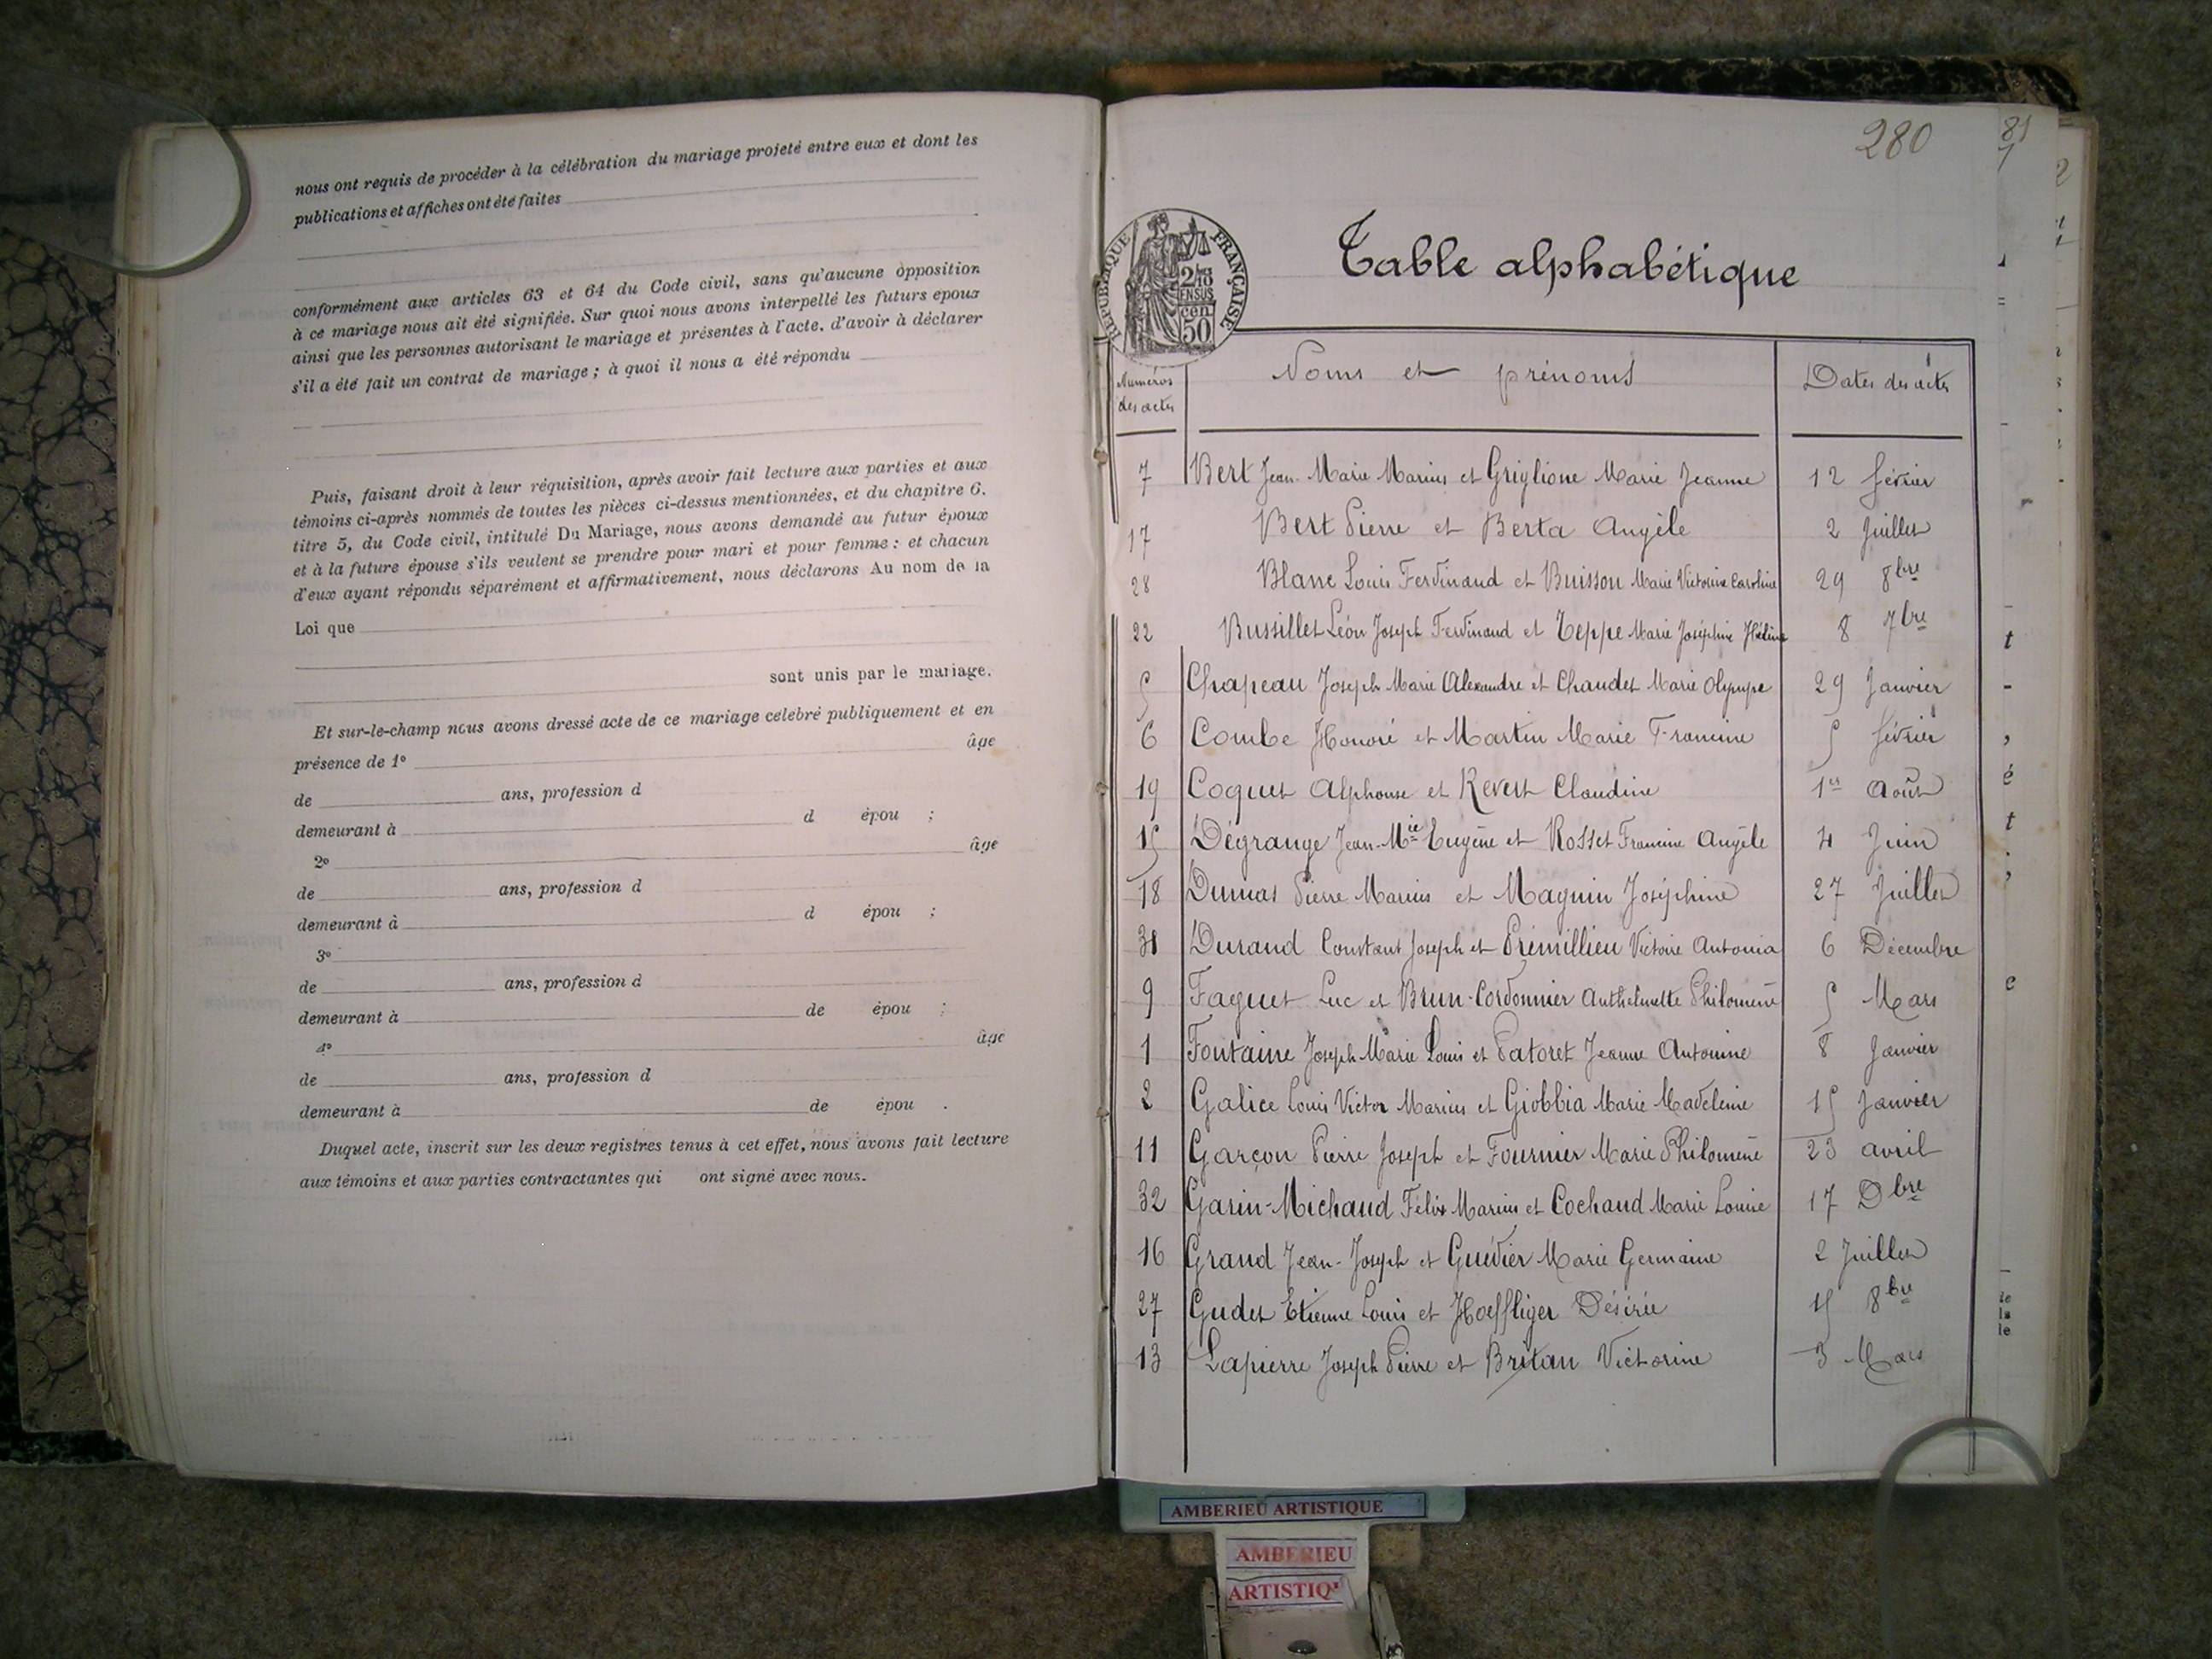 nous ont requis de procéder à la célébration du mariage projeté entre eux et dont les
publications et affiches ont été faites
conformément aux articles 63 et 64 du Code civil, sans qu'aucune opposition
à ce mariage nous ait été signifiée. Sur quoi nous avons interpellé les futurs epoux
ainsi que les personnes autorisant le mariage et présentes à l'acte. d'avoir à déclarer
s'il a été fait un contrat de mariage ; à quoi il nous a été répondu
Puis, faisant droit à leur réquisition, après avoir fait lecture aux parties et aux
témoins ci-après nommés de toutes les pièces ci-dessus mentionnées, et du chapitre 6.
titre 5, du Code civil, intitulé Du Mariage, nous avons demandé au futur époux
et à la future épouse s'ils veulent se prendre pour mari et pour femme : et chacun
d'eux ayant répondu séparément et affirmativement, nous déclarons Au nom de la
Loi que
sont unis par le mariage.
Et sur-le-champ nous avons dressé acte de ce mariage célebré publiquement et en
présence de 1º âge
de ans, profession d
demeurant à d épou ;
2º âge
de ans, profession d
demeurant à d épou ;
3º
de ans, profession d
demeurant à de épou ;
4º âge
de ans, profession d
demeurant à de épou .
Duquel acte, inscrit sur les deux registres tenus à cet effet, nous avons fait lecture
aux témoins et aux parties contractantes qui ont signé avec nous.
280
81
RÉPUBLIQUE FRANÇAISE
2/10
EN SUS
cen
50
Table alphabétique
Numéros des actes Noms et prénoms Dates des actes
7 Bert Jean-Marie Marius et Griglione Marie Jeanne 12 février
17 Bert Pierre et Berta Angèle 2 Juillet
28 Blanc Louis Ferdinand et Buisson Marie Victorine Caroline 29 8bre
22 Bussillet Léon Joseph Ferdinand et Teppe Marie Joséphine Hélène 8 7bre
5 Chapeau Joseph Marie Alexandre et Chaudet Marie Olympe 29 Janvier
6 Combe Honoré et Martin Marie Francine 5 février
19 Coquet Alphonse et Revert Claudine 1er Août
15 Dégrange Jean-Mie Eugène et Rosset Francine Angèle 4 Juin
18 Dumas Pierre Marius et Magnin Joséphine 27 Juillet
31 Durand Constant Joseph et Prémillieu Victoire Antonia 6 Décembre
9 Faguet Luc et Brun-Cordonnier Anthelmette Philomène 5 Mars
1 Fontaine Joseph Marie Louis et Patoret Jeanne Antonine 8 Janvier
2 Galice Louis Victor Marius et Giobbia Marie Madeleine 15 Janvier
11 Garçon Pierre Joseph et Fournier Marie Philomène 23 avril
32 Garin-Michaud Félix Marius et Cochaud Marie Louise 17 Dbre
16 Grand Jean-Joseph et Guédier Marie Germaine 2 Juillet
27 Gudet Etienne Louis et Hoeffliger Désirée 15 8bre
13 Lapierre Joseph Pierre et Britan Victorine 3 Mars
AMBERIEU ARTISTIQUE
AMBERIEU
ARTISTIQ